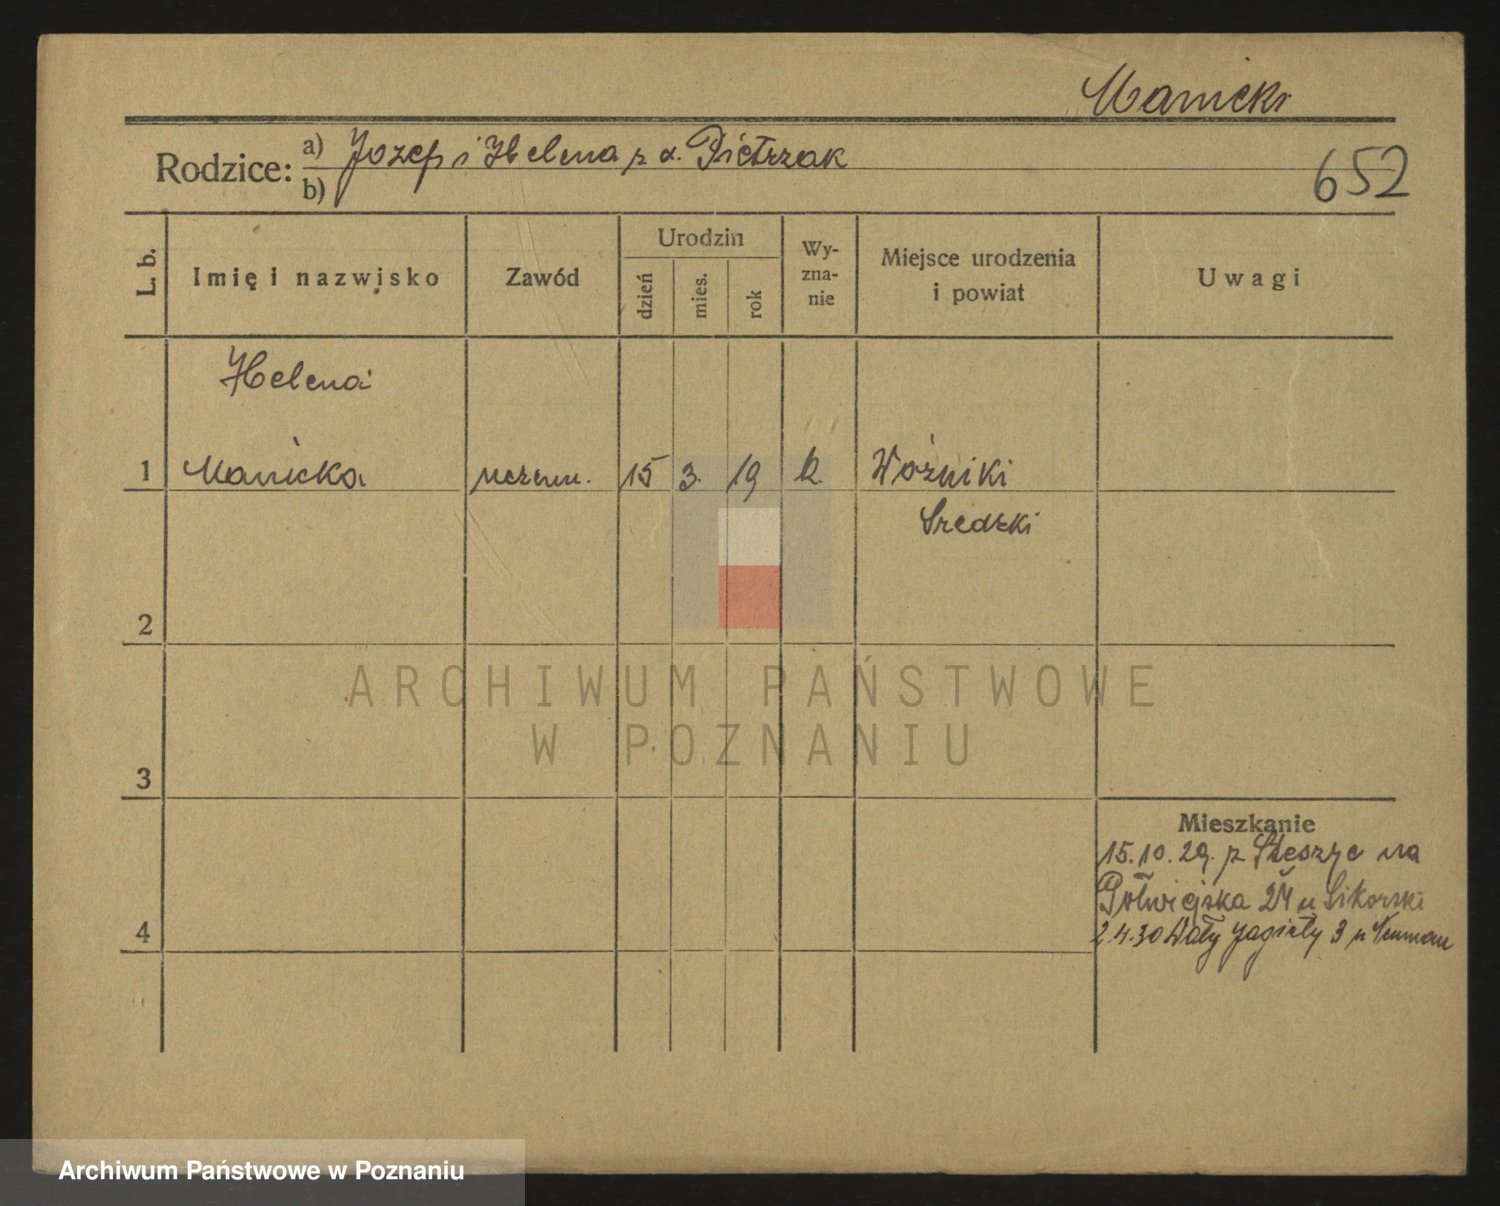 Manicki
Rodzice: a) Jozef i Helena z d. Pietrzak
b)
652
L. b.
Imię i nazwisko
Zawód
Urodzin
dzień
mies.
rok
Wy-
zna-
nie
Miejsce urodzenia
i powiat
Uwagi
Helena
1 Manicka uczenn. 15 3. 19 k. Woźniki
Sredzki
2
3
4
Mieszkanie
15.10.29. z na
Półwiejska 24 u Sikorski
2.4.30 Wały Jagiełły 3 u Neuman
ARCHIWUM PAŃSTWOWE
W POZNANIU
Archiwum Państwowe w Poznaniu